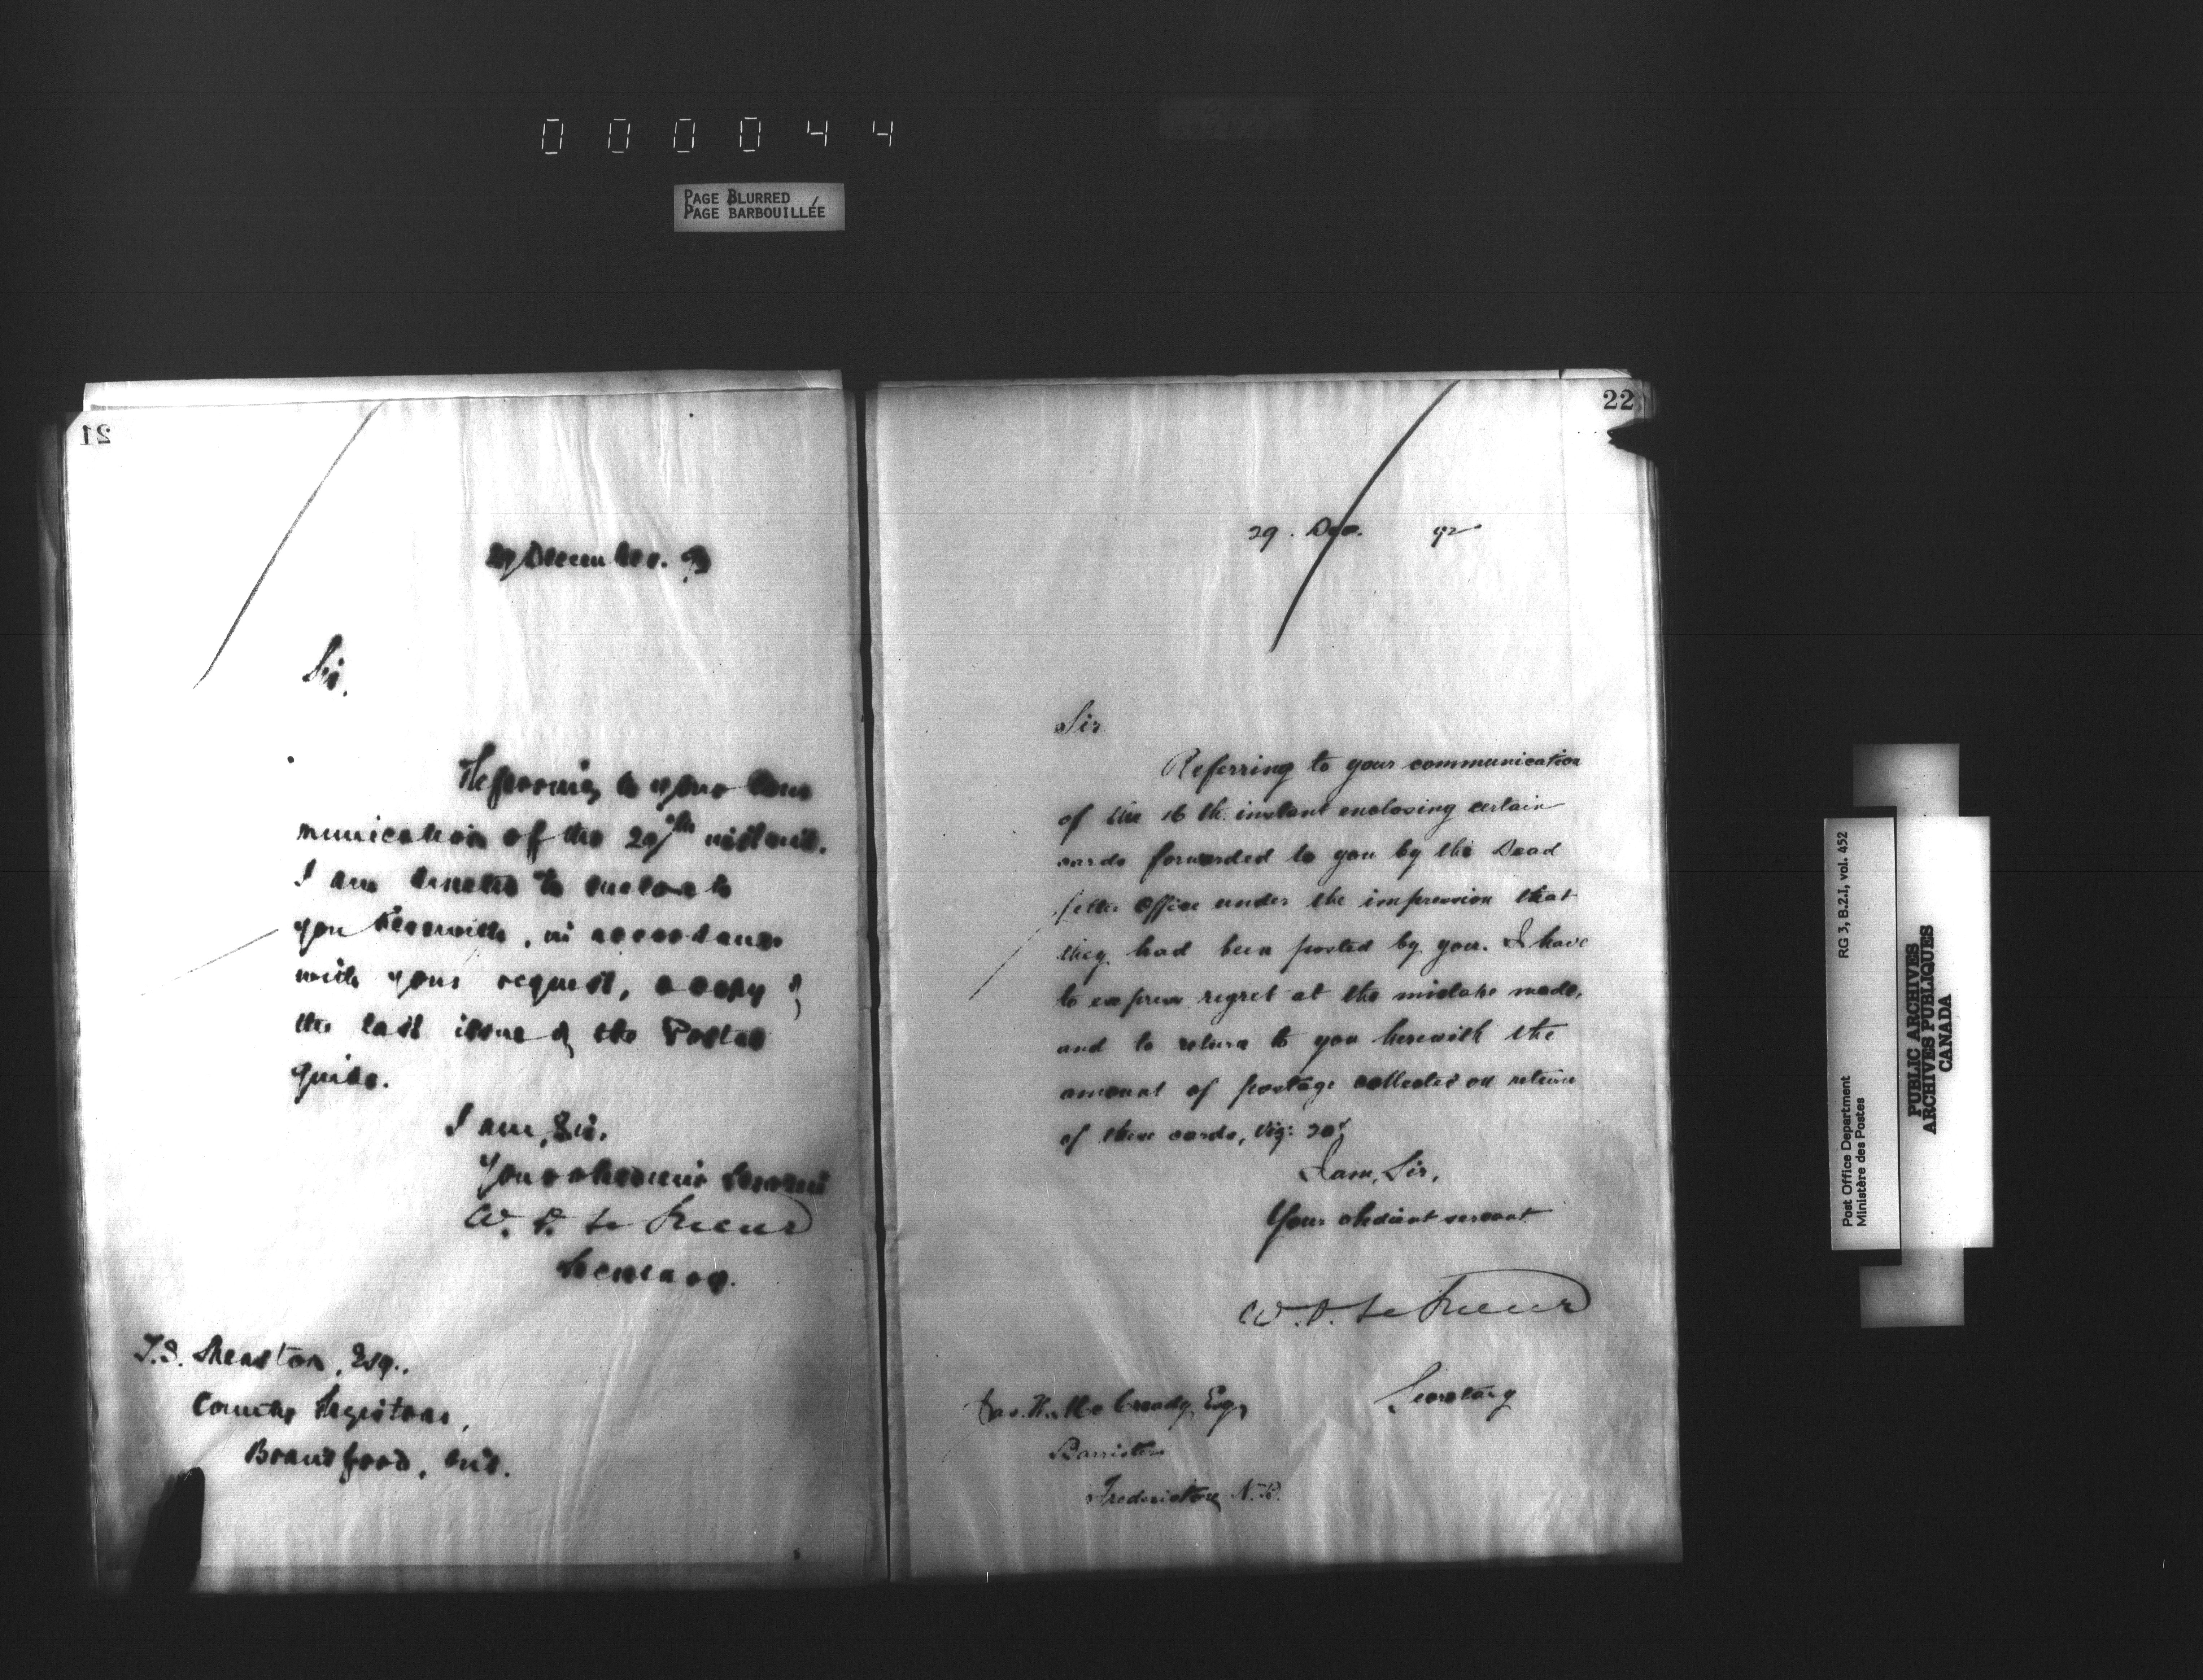 000044
PAGE BLURRED
PAGE BARBOUILLÉE
21
December.
Sir.
Referring to your com
munication of the 29th instant.
I am directed to enclose to
you herewith, in accordance
with your request, a copy of
the last issue of the Postal
guide.
I am, Sir,
Your obedient servant
W. D. Le Sueur
Secretary.
T.S. Shenston, Esq.,
County Registrar,
Brantford, Ont.
22
29. Dec. 92
Sir
Referring to your communication
of the 16 th. instant enclosing certain
cards forwarded to you by the Dead
Letter Office under the impression that
they had been posted by you. I have
to express regret at the mistake made,
and to return to you herewith the
amount of postage collected on return
of these cards, viz: 20¢
I am, Sir,
Your obedient servant
W. D. Le Sueur
Secretary
Jas. H. McCready, Esq,
Barrister
Fredericton N.B.
Post Office Department RG 3, B.2.I, vol. 452
Ministère des Postes
PUBLIC ARCHIVES
ARCHIVES PUBLIQUES
CANADA